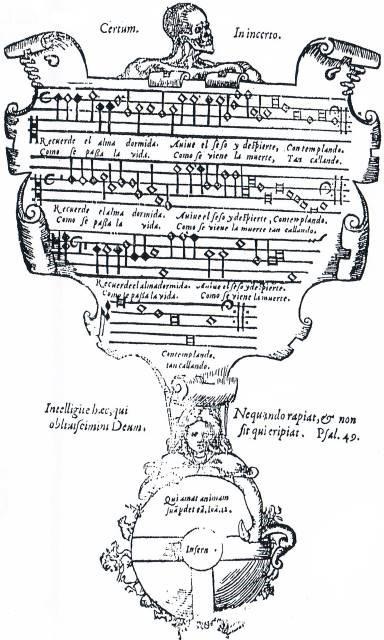 Certum. In incerto.
Recuerde el alma dormida. Auiue el seso y despierte, Contemplando.
Como se passa la vida. Como se viene la muerte, Tan callando.
Recuerde el alma dormida. Auiue el seso y despierte, Contemplando.
Como se passa la vida. Como se viene la muerte tan callando.
Recuerde el alma dormida. Auiue el seso y despierte.
Como se passa la vida. Como se viene la muerte.
Contemplando.
tan callando.
Intelligite hæc, qui
obliuiscimini Deum.
Nequando rapiat, & non
sit qui eripiat. Psal. 49.
Qui amat animam